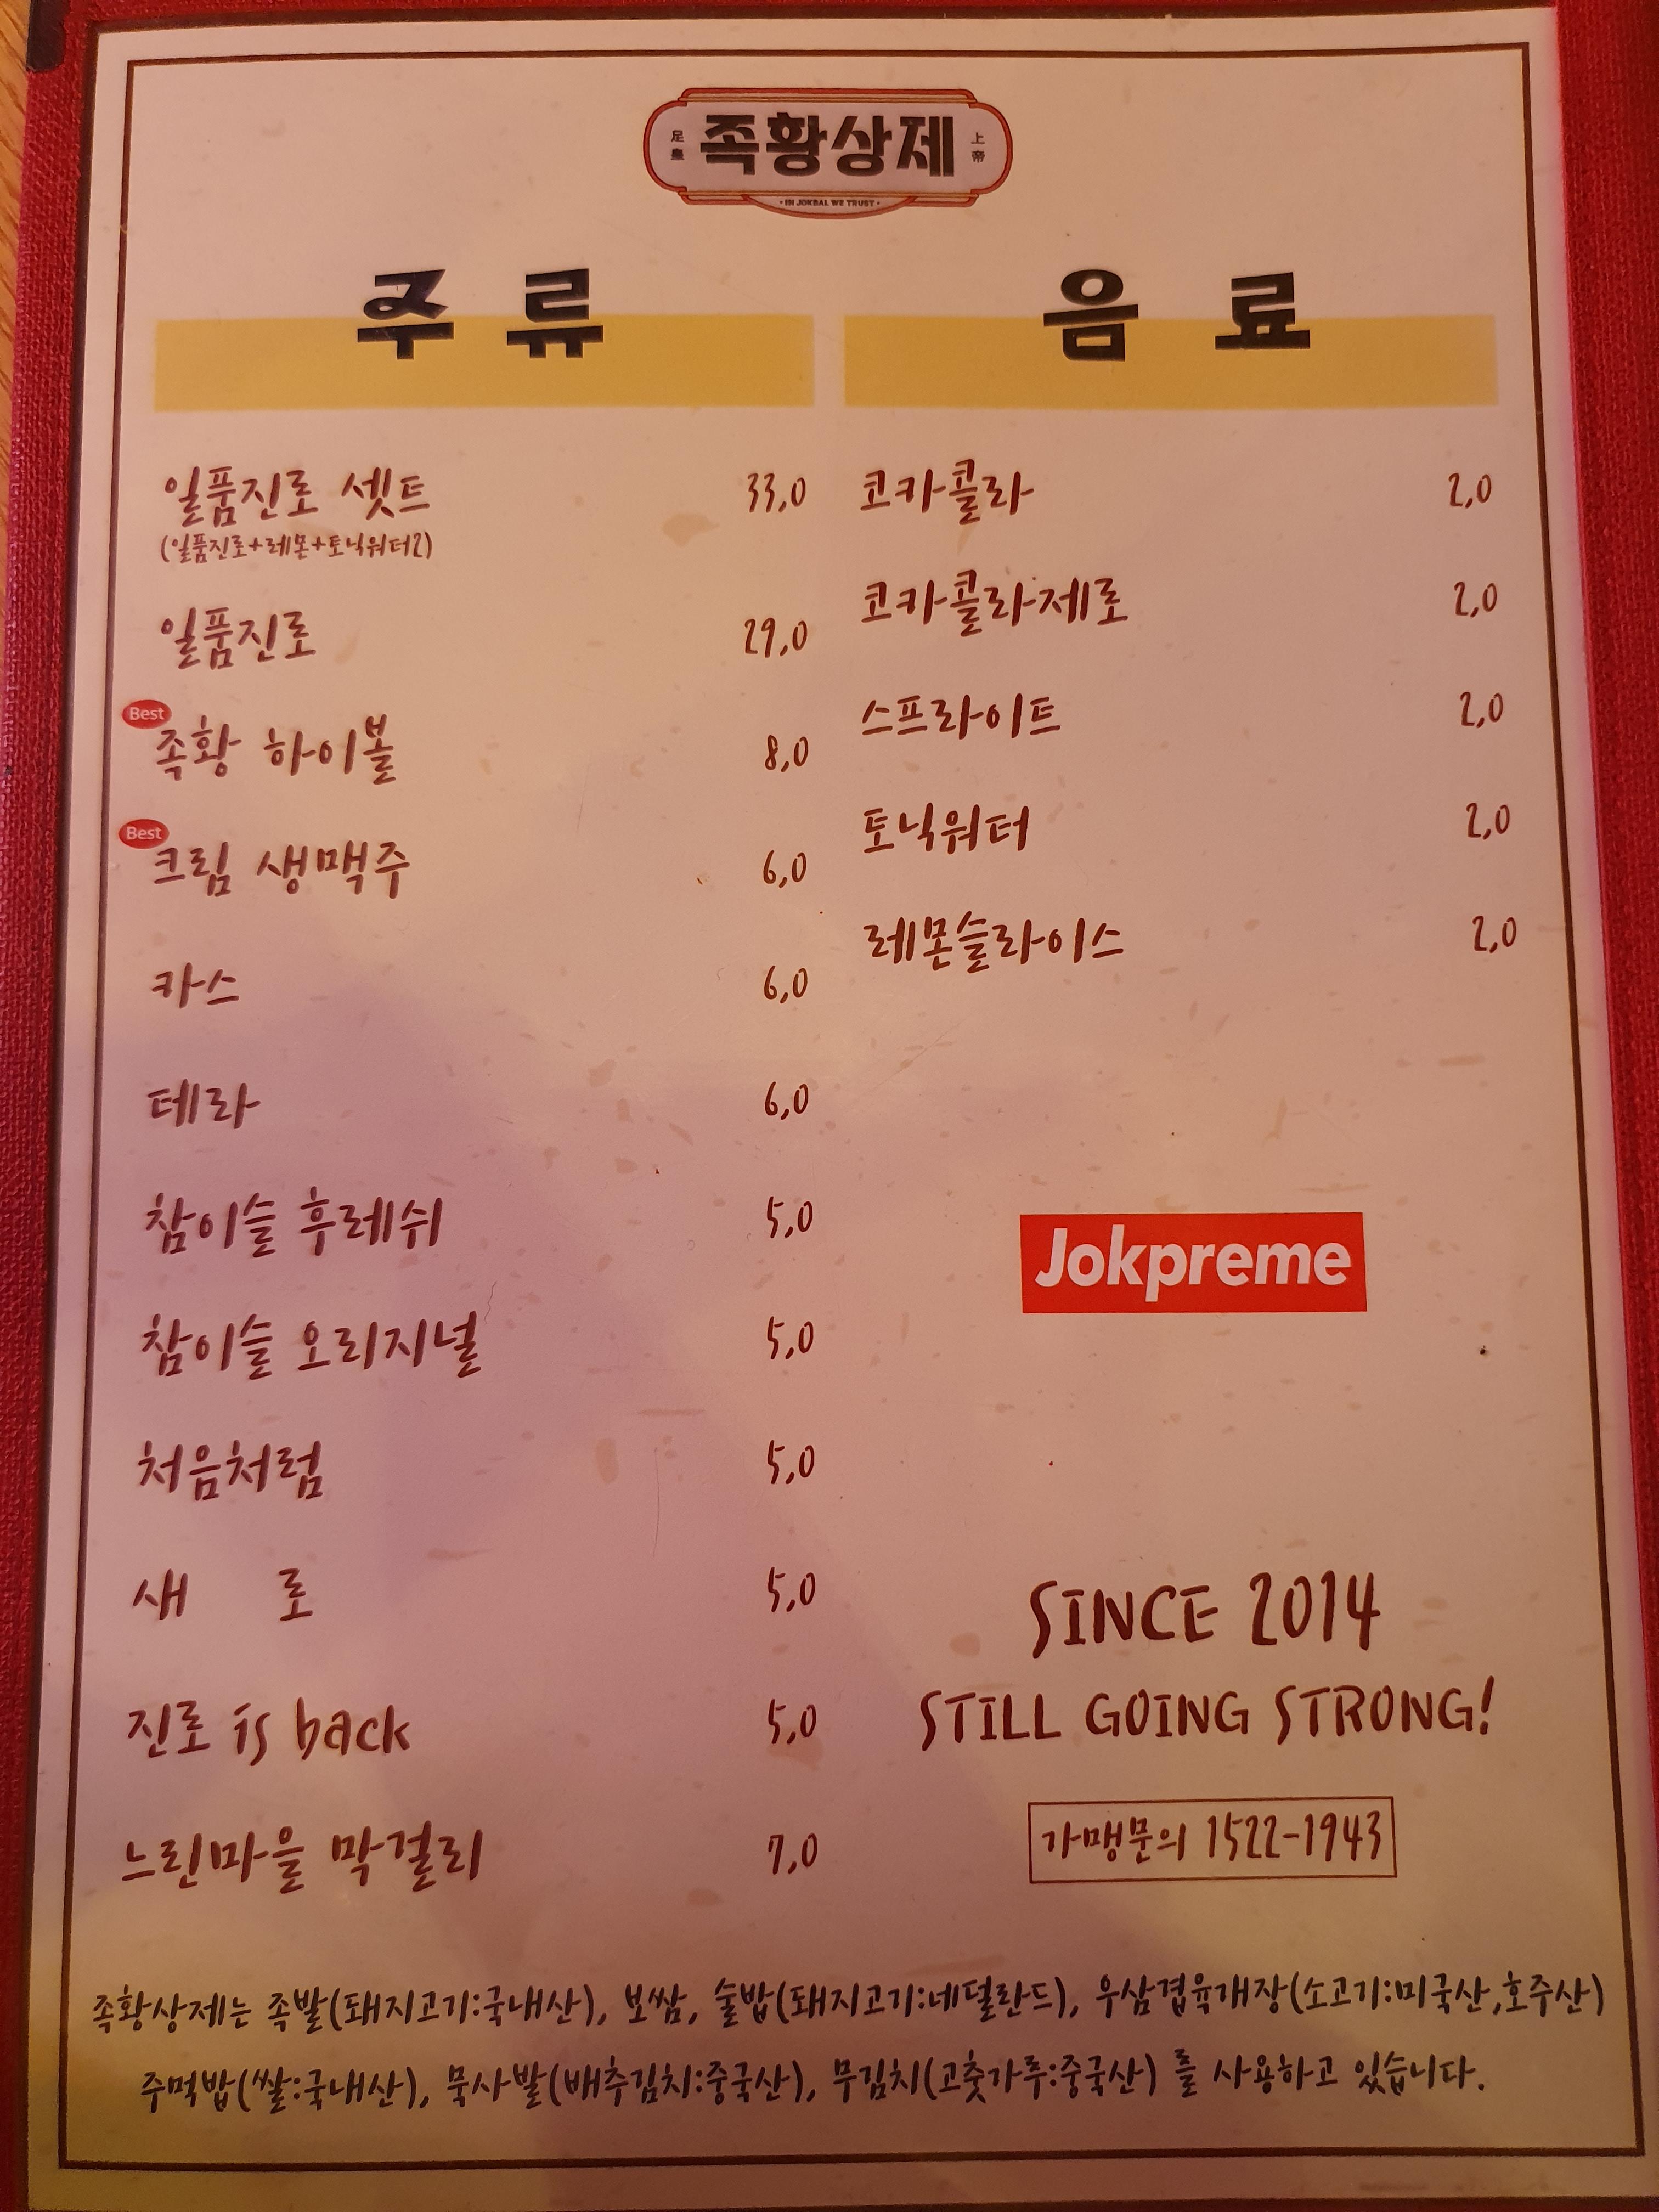 足皇 족황상제 上帝
· IN JOKBAL WE TRUST ·
주류
일품진로 셋트 33,0
(일품진로+레몬+토닉워터2)
일품진로 29,0
Best
족황 하이볼 8,0
Best
크림 생맥주 6,0
카스 6,0
테라 6,0
참이슬 후레쉬 5,0
참이슬 오리지널 5,0
처음처럼 5,0
새 로 5,0
진로 is back 5,0
느린마을 막걸리 7,0
음료
코카콜라 2,0
코카콜라제로 2,0
스프라이트 2,0
토닉워터 2,0
레몬슬라이스 2,0
Jokpreme
SINCE 2014
STILL GOING STRONG!
가맹문의 1522-1943
족황상제는 족발(돼지고기:국내산), 보쌈, 술밥(돼지고기:네덜란드), 우삼겹육개장(소고기:미국산,호주산)
주먹밥(쌀:국내산), 묵사발(배추김치:중국산), 무김치(고춧가루:중국산) 를 사용하고 있습니다.